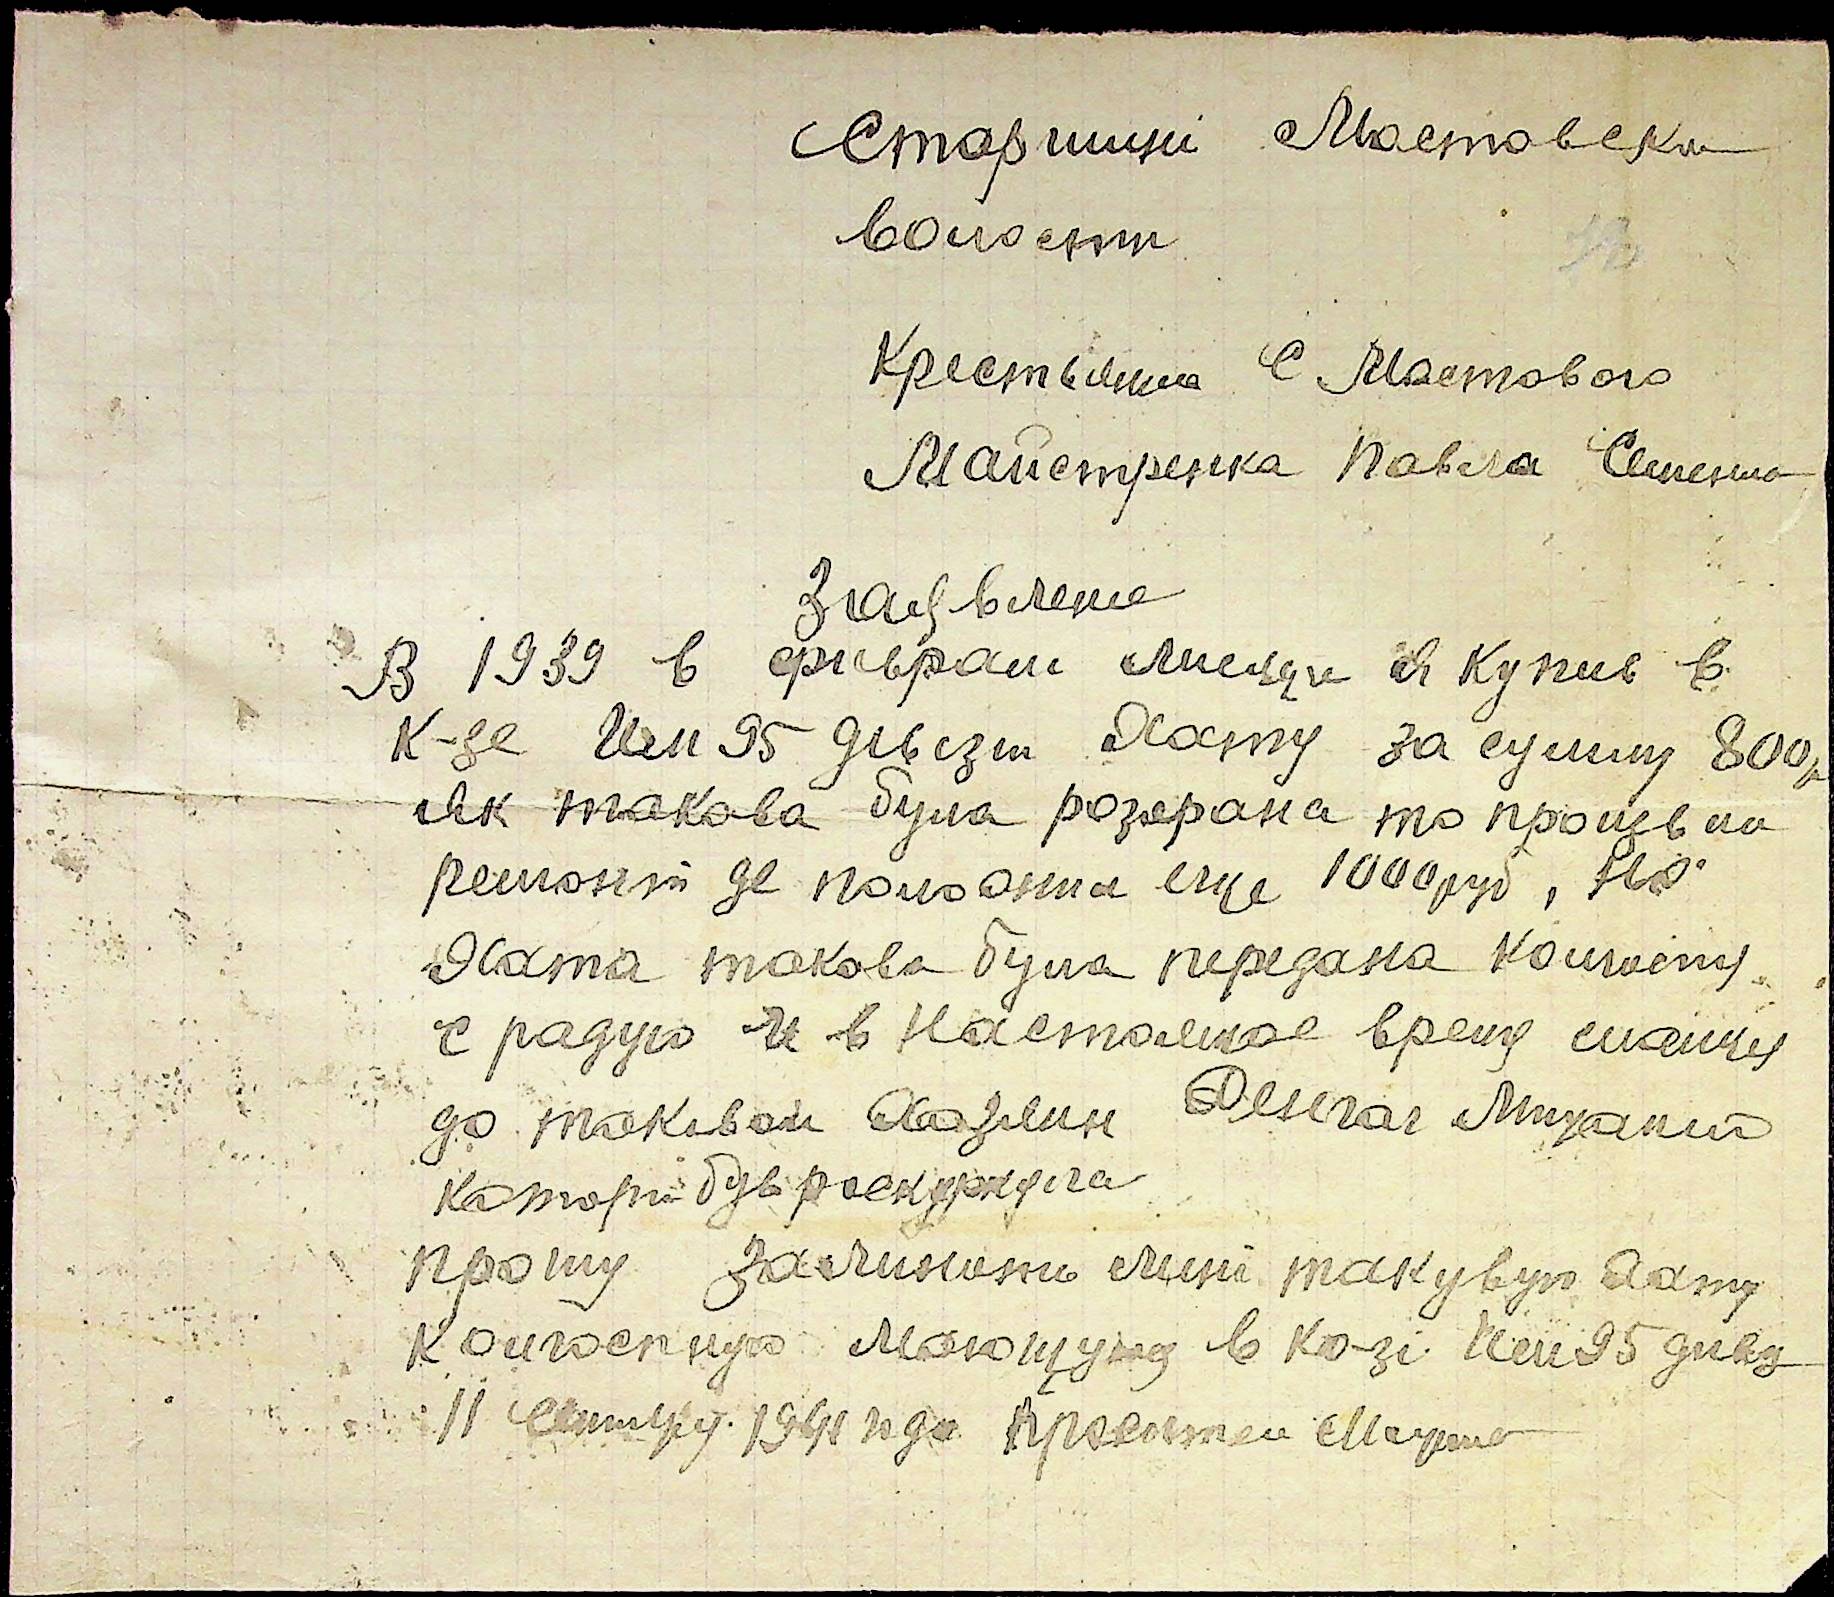 Старшині Мастовски
волости
Крестьянина С Мастового
Майстренка Павла Семенов
Заявление
В 1939 в феврали місяци я купив в
К-зе Им 95 дивізи Хату за сумму 800р
Як такова була розерана то провів
ремонт де полооти еще 1000 руб, но
Хата такова була передана колгоспу
с радую и в настоящое время
до таковои Хазяин Михаил
которий був роскуркула
прошу заминить мині такувую Хату
Колгоспную в ко-зі Им 95 дивз
11 1941 года проситель